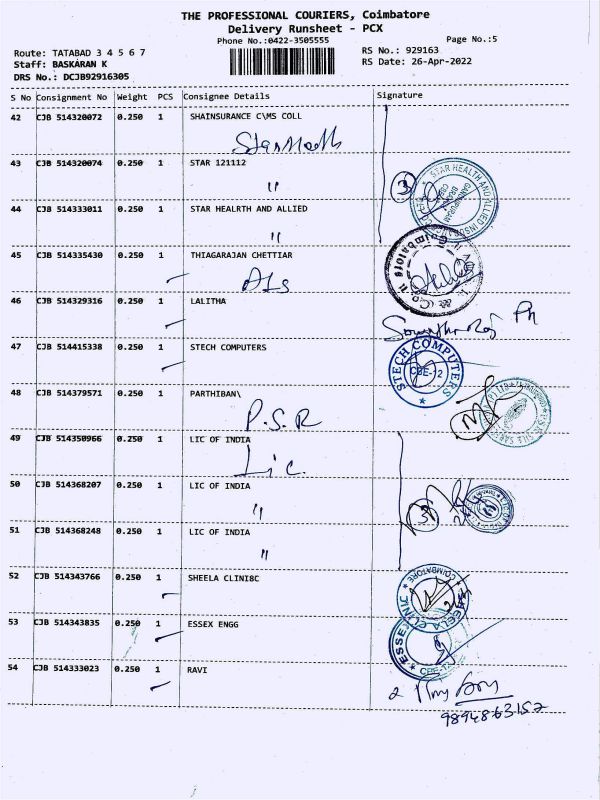 THE PROFESSIONAL COURIERS, Coimbatore
Delivery Runsheet - PCX
Phone No.:0422-3505555
Page No.:5
Route: TATABAD 3 4 5 6 7
RS No.: 929163
Staff: BASKARAN K
RS Date: 26-Apr-2022
DRS No.: DCJB92916305
S No Consignment No Weight PCS Consignee Details Signature
42 CJB 514320072 0.250 1 SHAINSURANCE C\MS COLL
43 CJB 514320074 0.250 1 STAR 121112
"
3
STAR HEALTH AND ALLIED
44 CJB 514333011 0.250 1 STAR HEALRTH AND ALLIED
"
45 CJB 514335430 0.250 1 THIAGARAJAN CHETTIAR
46 CJB 514329316 0.250 1 LALITHA
47 CJB 514415338 0.250 1 STECH COMPUTERS
STECH COMPUTERS
CBE-12
48 CJB 514379571 0.250 1 PARTHIBAN\
P.S.R
49 CJB 514350966 0.250 1 LIC OF INDIA
Lic.
50 CJB 514368207 0.250 1 LIC OF INDIA
"
3
51 CJB 514368248 0.250 1 LIC OF INDIA
"
52 CJB 514343766 0.250 1 SHEELA CLINI8C
COIMBATORE
SHEELA CLINIC
53 CJB 514343835 0.250 1 ESSEX ENGG
ESSEX
CBE-12
54 CJB 514333023 0.250 1 RAVI
9894863152